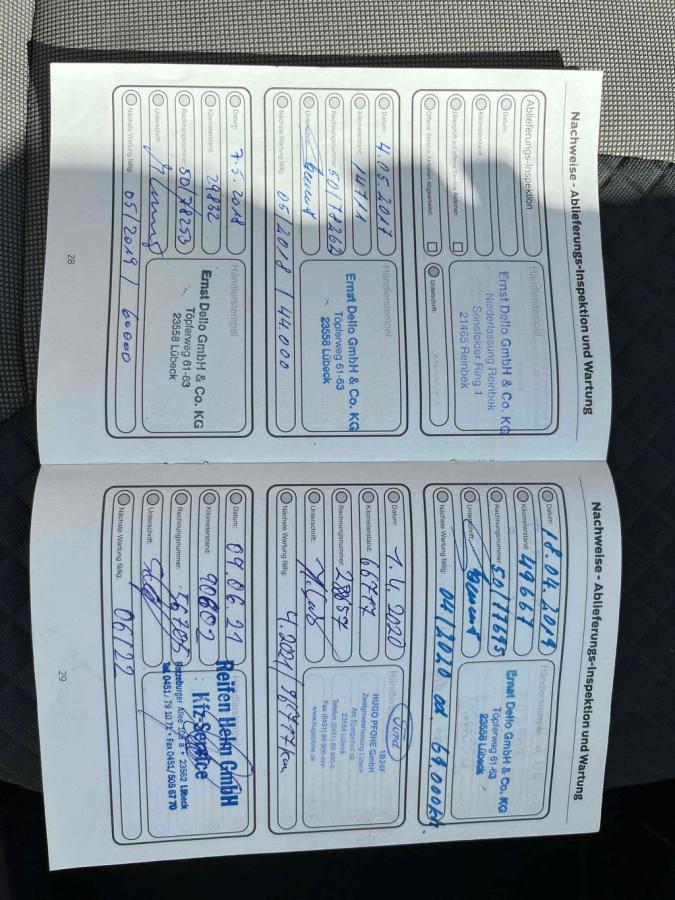 Nachweise - Ablieferungs-Inspektion und Wartung
Ablieferungs-Inspektion
Datum:
Kilometerstand:
Überprüft auf offene Service Aktionen:
Offene Service Aktionen abgearbeitet:
Händlerstempel
Ernst Dello GmbH & Co. KG
Niederlassung Reinbek
Senefelder Ring 1
21465 Reinbek
Unterschrift:
Datum: 4.05.2017
Kilometerstand: 14711
Rechnungsnummer: 50/78262
Unterschrift:
Nächste Wartung fällig: 05/2018 / 44.000
Händlerstempel
Ernst Dello GmbH & Co. KG
Töpferweg 61-63
23558 Lübeck
Datum: 7.5.2018
Kilometerstand: 29832
Rechnungsnummer: 50/78253
Unterschrift:
Nächste Wartung fällig: 05/2019 / 60000
Händlerstempel
Ernst Dello GmbH & Co. KG
Töpferweg 61-63
23558 Lübeck
28
Nachweise - Ablieferungs-Inspektion und Wartung
Datum: 18.04.2019
Kilometerstand: 49667
Rechnungsnummer: 50/77695
Unterschrift:
Nächste Wartung fällig: 04/2020 od 69.000km.
Händlerstempel
Ernst Dello GmbH & Co. KG
Töpferweg 61-63
23558 Lübeck
Datum: 1.4.2020
Kilometerstand: 66717
Rechnungsnummer: 28057
Unterschrift:
Nächste Wartung fällig: 4.2021 / 86717km
Ford
1B24F
HUGO PFOHE GmbH
Zweigniederlassung Lübeck
23554 Lübeck
www.hugopfohe.de
Datum: 09.06.21
Kilometerstand: 90602
Rechnungsnummer: 56705
Unterschrift:
Nächste Wartung fällig: 06/22
Reifen Helm GmbH
Kfz-Service
Ratzeburger Allee 106 a • 23562 Lübeck
Tel. 0451/ 79 10 71 • Fax 0451/ 505 67 70
29